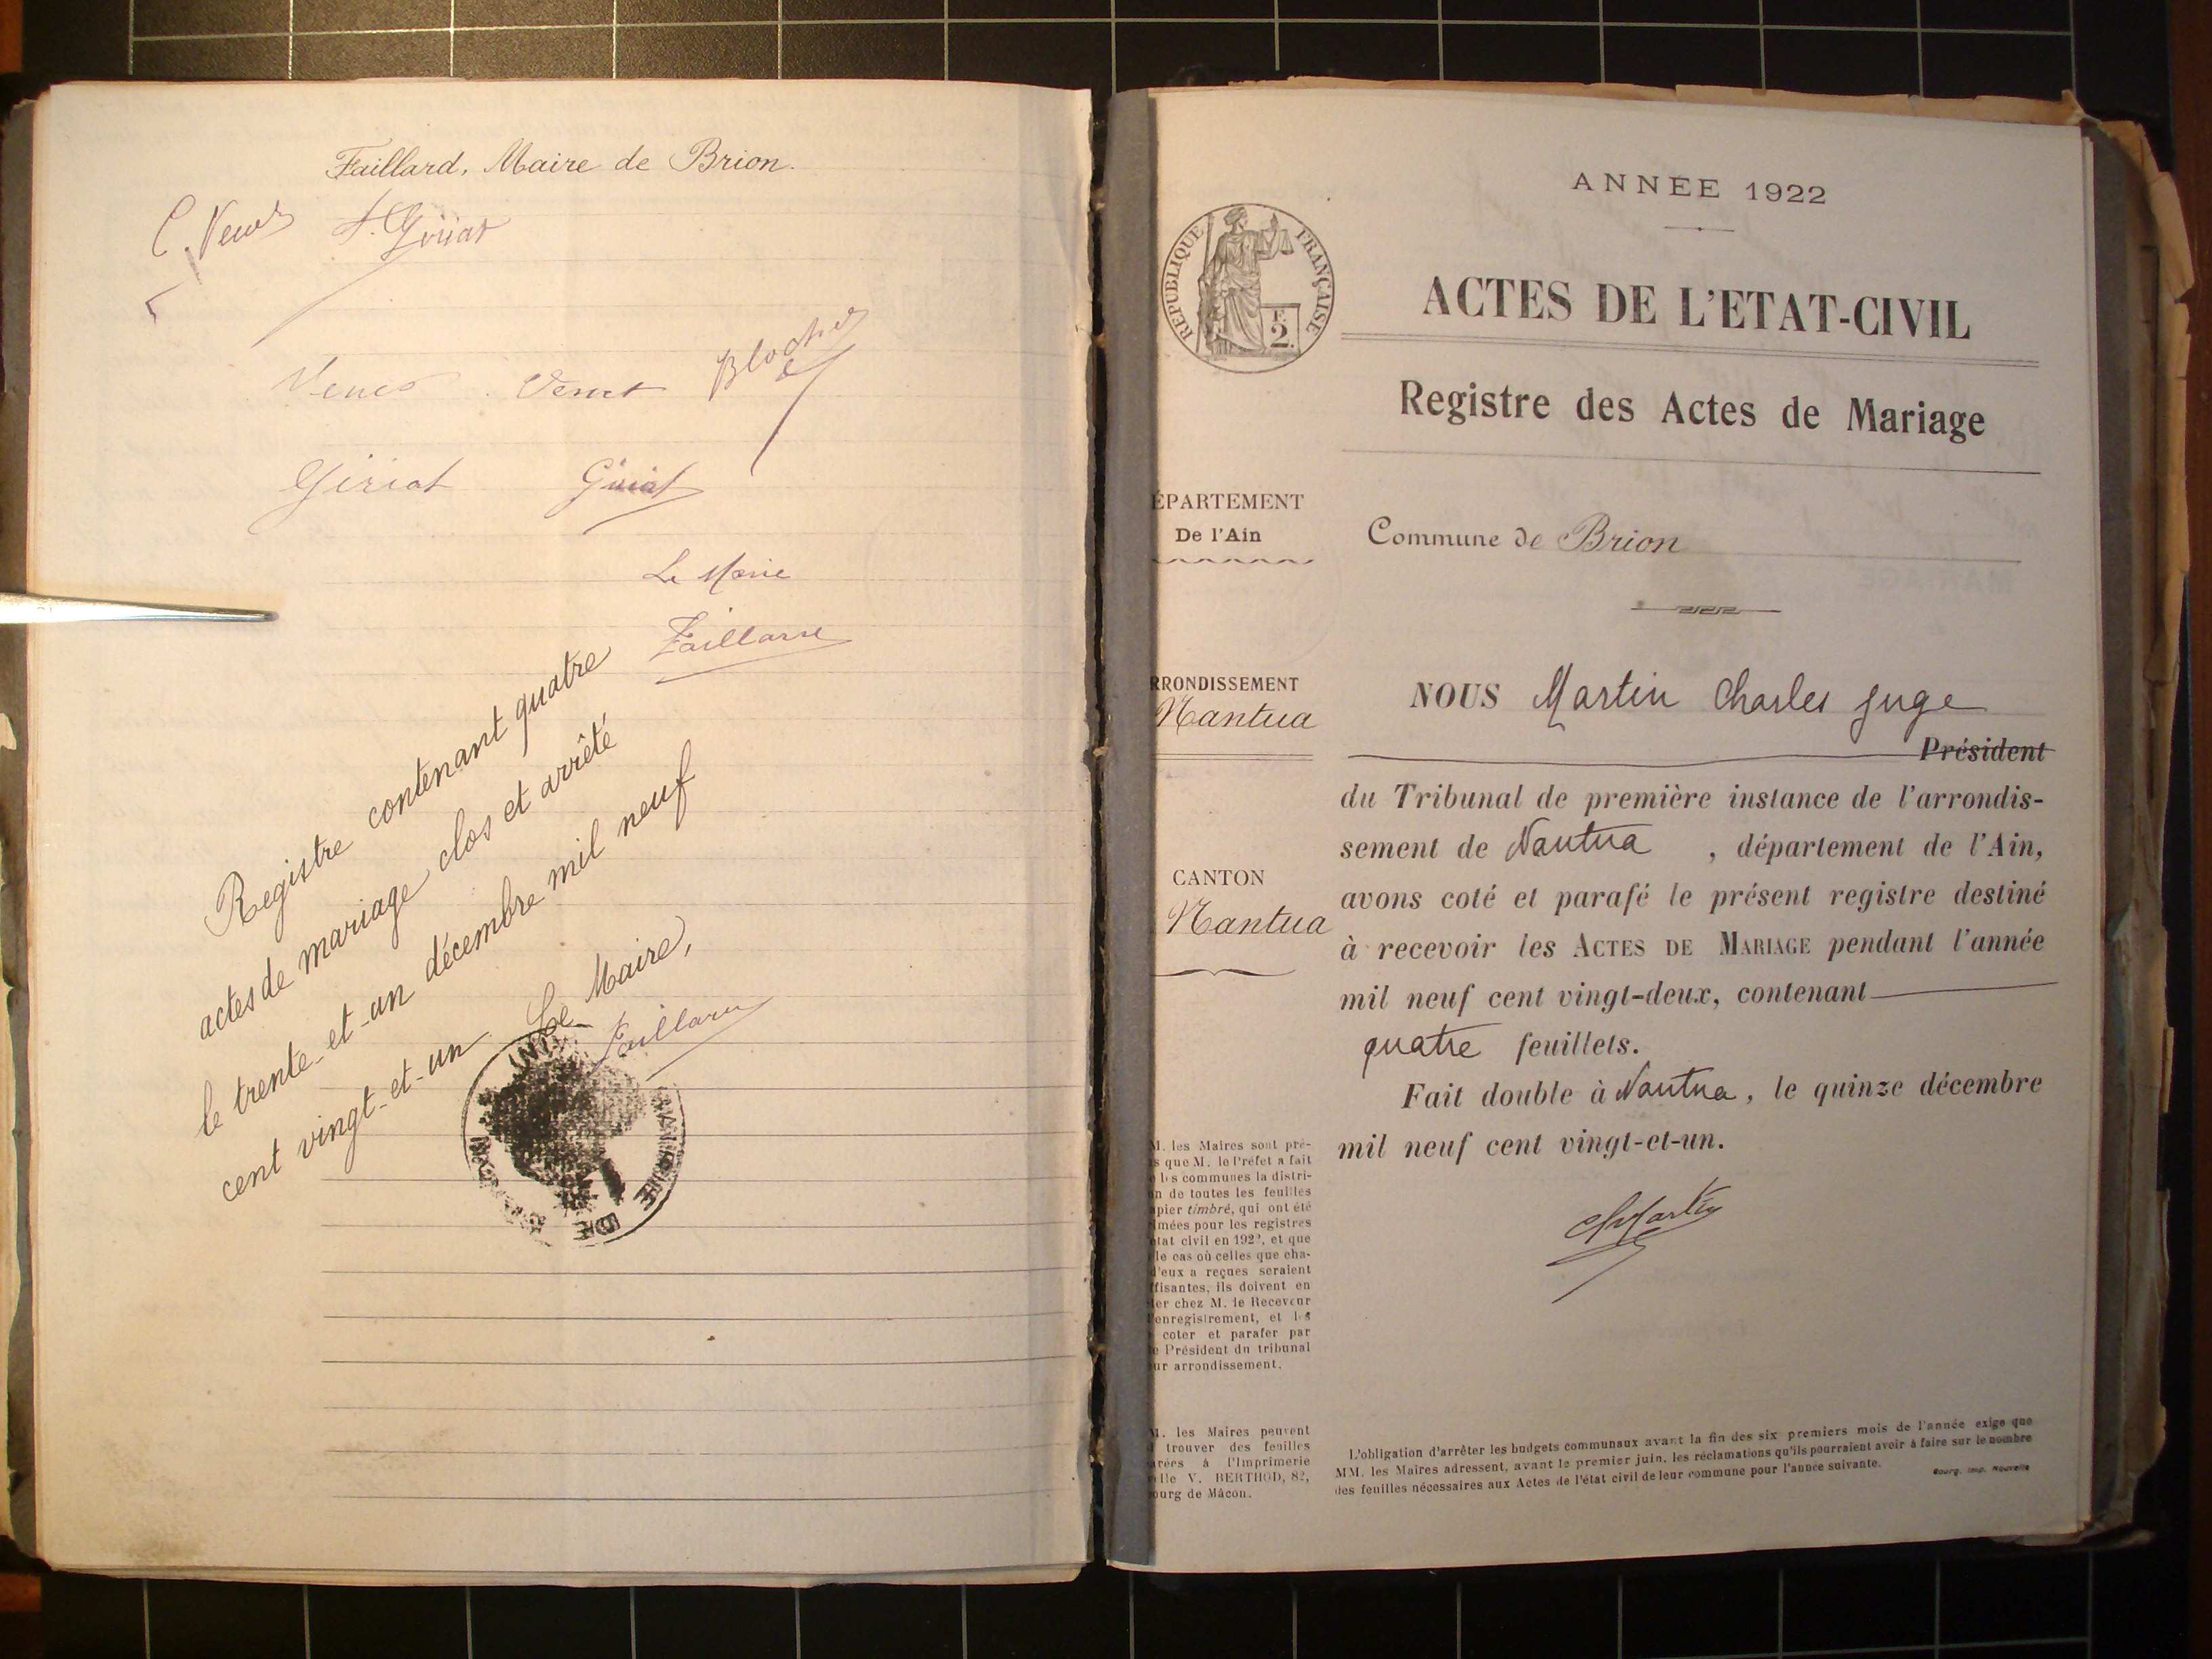 Faillard, Maire de Brion.
Giriat Giriat
Le Maire
Faillard
Registre contenant quatre
actes de mariage clos et arrêté
le trente-et-un décembre mil neuf
cent vingt-et-un Le Maire,
Faillard
ANNÉE 1922
REPUBLIQUE FRANÇAISE
2
ACTES DE L'ETAT-CIVIL
Registre des Actes de Mariage
ÉPARTEMENT
De l'Ain
Commune de Brion
RRONDISSEMENT
Nantua
CANTON
Nantua
NOUS Martin Charles juge
Président
du Tribunal de première instance de l'arrondis-
sement de Nantua , département de l'Ain,
avons coté et parafé le présent registre destiné
à recevoir les ACTES DE MARIAGE pendant l'année
mil neuf cent vingt-deux, contenant
quatre feuillets.
Fait double à Nantua, le quinze décembre
mil neuf cent vingt-et-un.
M. les Maires sont pré-
s que M. le Préfet a fait
les communes la distri-
n de toutes les feuilles
pier timbré, qui ont été
imées pour les registres
état civil en 1922, et que
le cas où celles que cha-
d'eux a reçues seraient
ffisantes, ils doivent en
ter chez M. le Receveur
enregistrement, et les
coter et parafer par
e Président du tribunal
ur arrondissement.
M. les Maires peuvent
trouver des feuilles
arées à l'Imprimerie
elle V. BERTHOD, 82,
ourg de Mâcon.
L'obligation d'arrêter les budgets communaux avant la fin des six premiers mois de l'année exige que
MM. les Maires adressent, avant le premier juin, les réclamations qu'ils pourraient avoir à faire sur le nombre
des feuilles nécessaires aux Actes de l'état civil de leur commune pour l'année suivante.
Bourg, Imp. Nouvelle